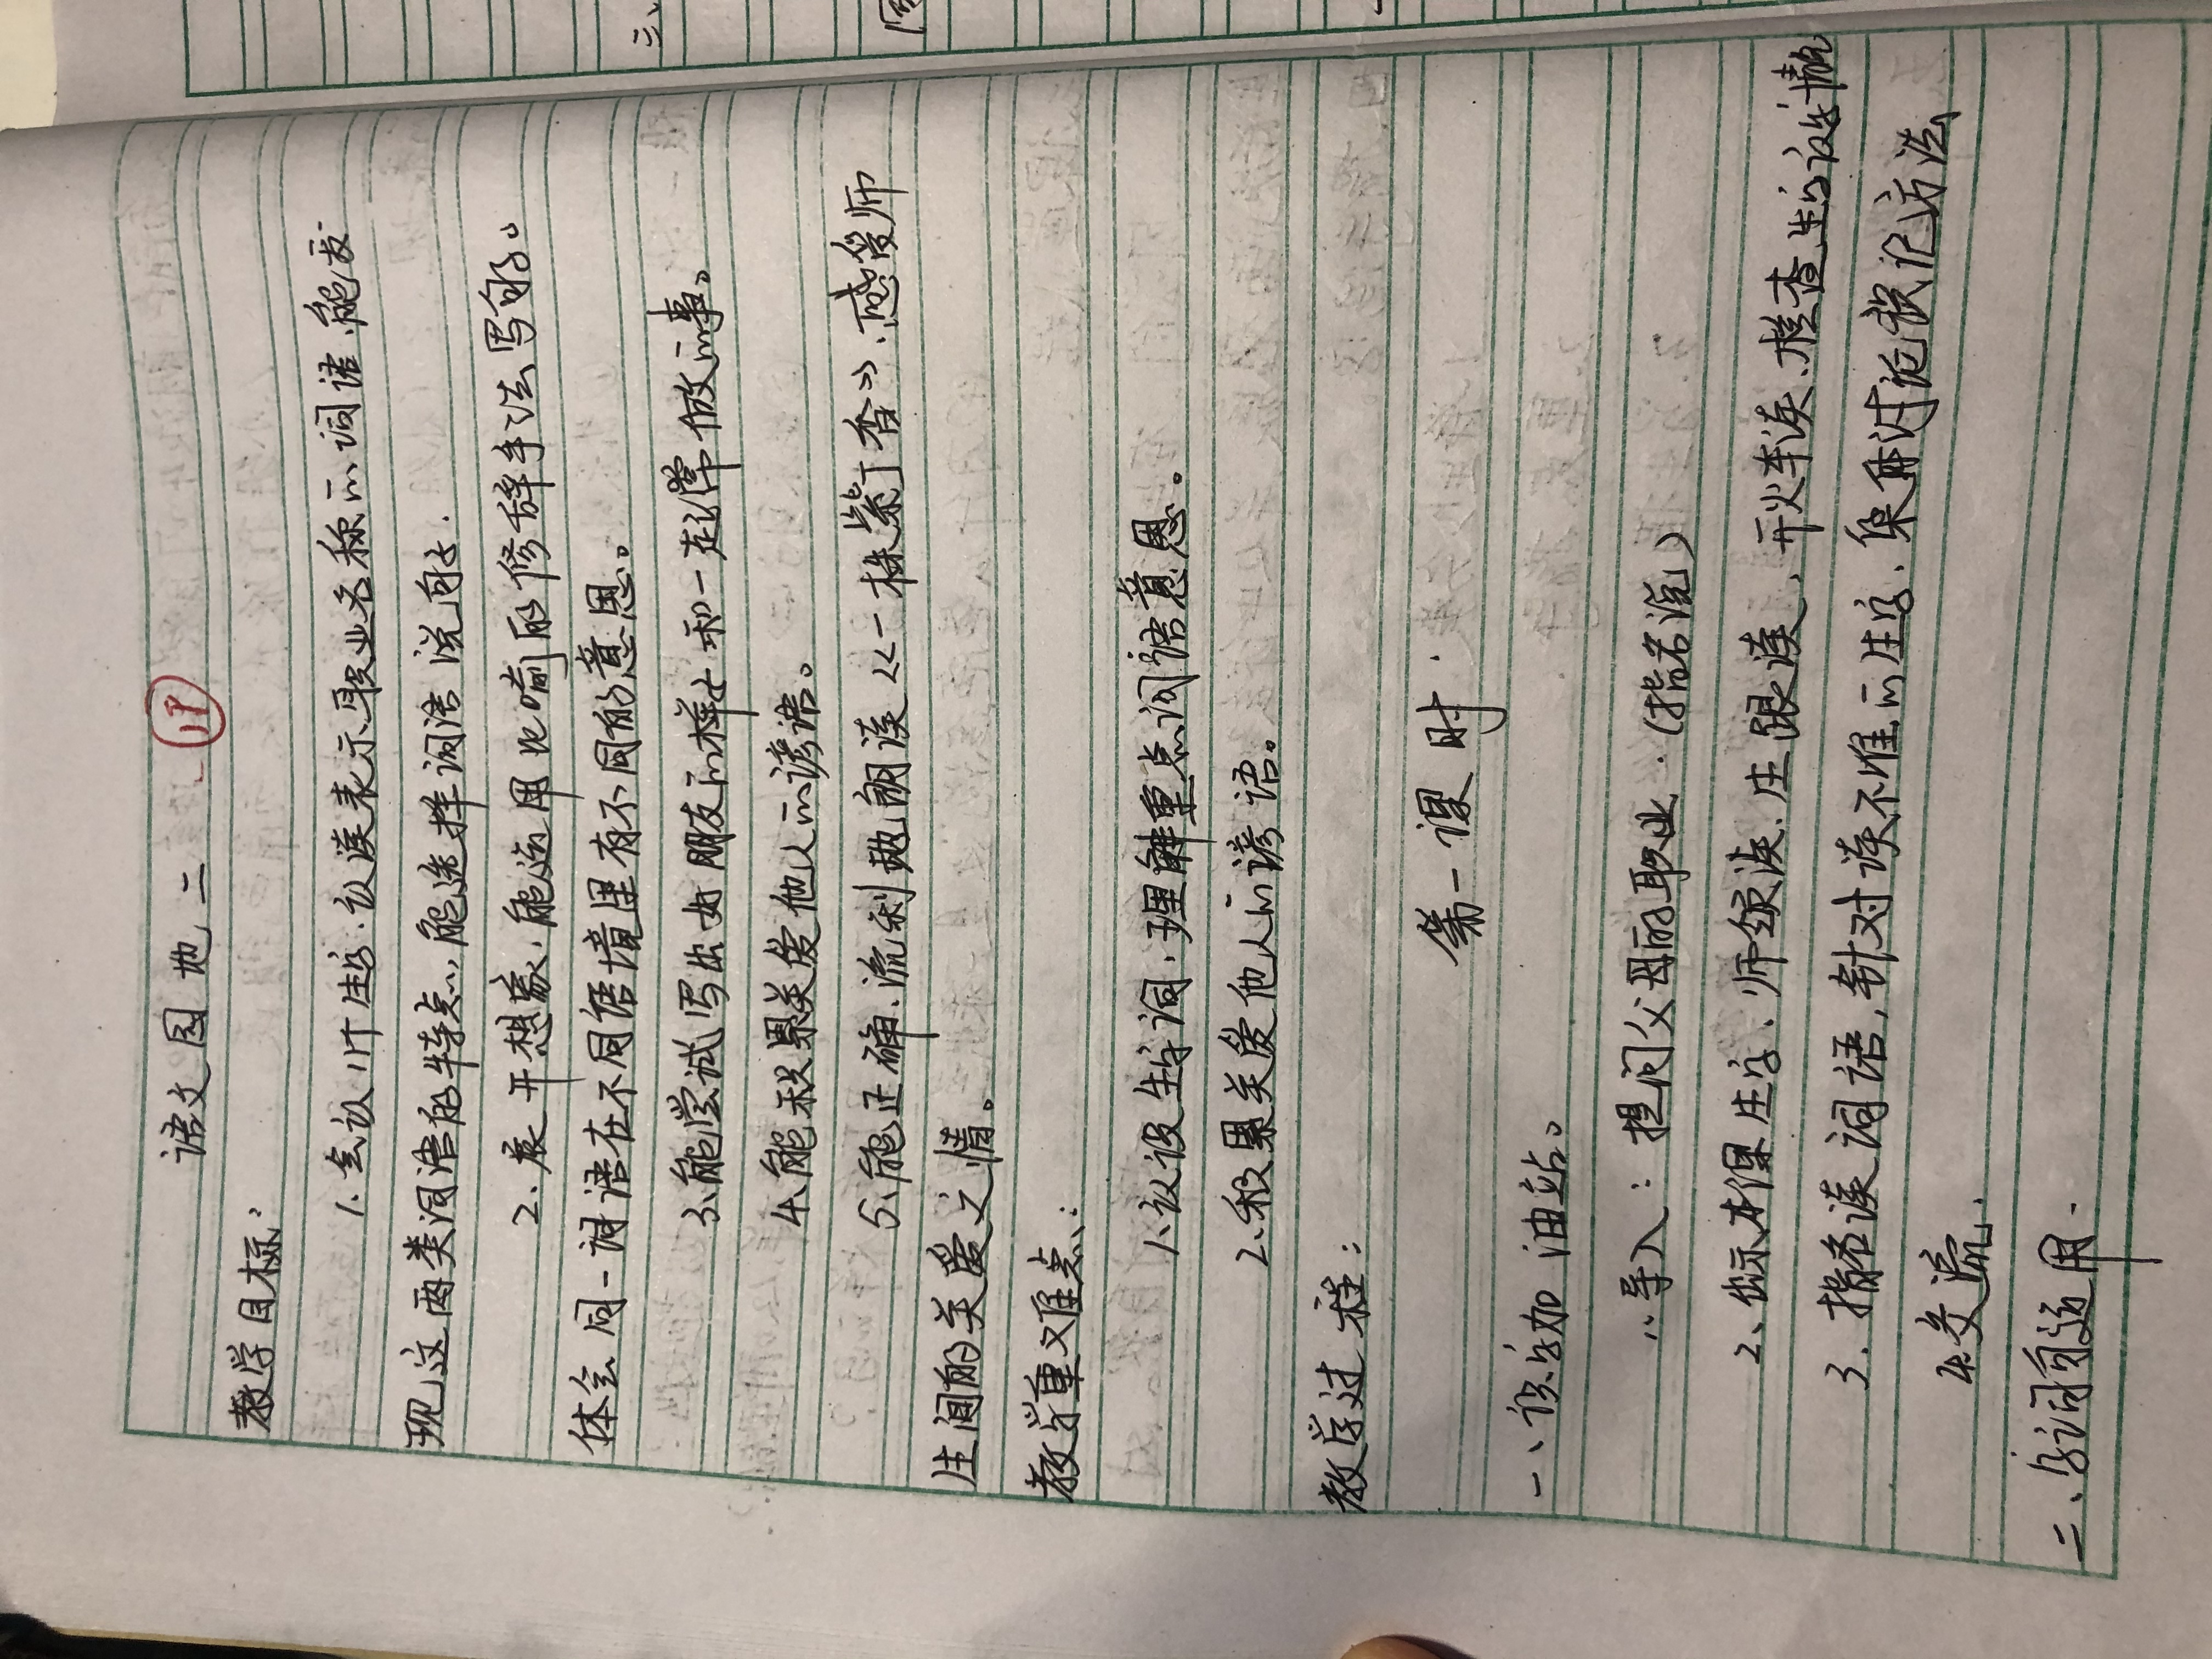 语文园地二
教学目标：
1.会认11个生字.认读表示职业名称的词语.能发
现这两类词语的特点,能选择词语说句子.
2、展开想象、能运用比喻的修辞手法写句子。
体会同一词语在不同语境里有不同的意思。
3.能尝试写出好朋友的样子和一起常做的事。
4.能积累关爱他人的谚语。
5、能正确.流利地朗读《一株紫丁香》.感受师
生间的关爱之情。
教学重难点：
1.认读生字词、理解重点词语意思。
2.积累关爱他人的谚语。
教学过程：
第一课时.
一、识字加油站。
1.导入：提问父母的职业.(指名说)
2、出示本课生字、师领读.生跟读、开火车读.检查生的认读情况
3.指名读词语,针对读不准的生字、集体讨论识记方法
4.交流.
二、字词运用.
三、